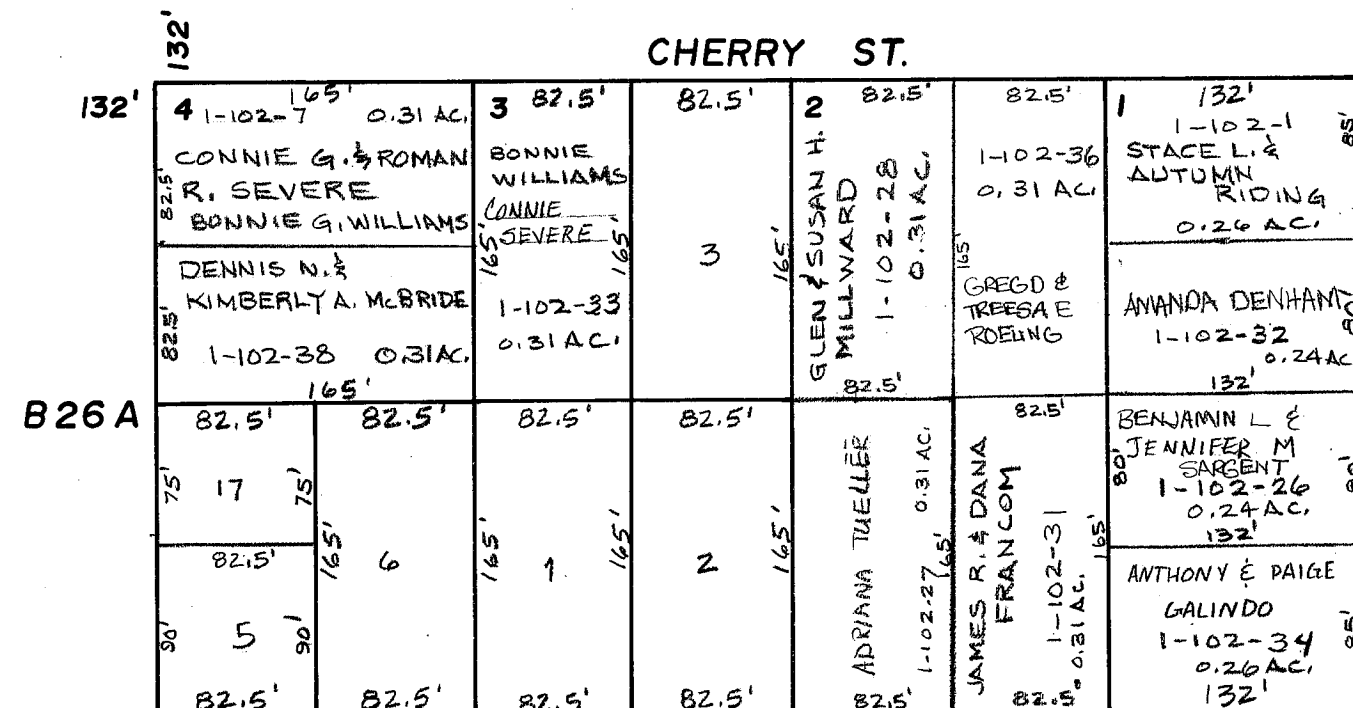 132'
CHERRY ST.
132'
4 1-102-7 165' 0.31 AC.
CONNIE G. & ROMAN
R. SEVERE
BONNIE G. WILLIAMS
82.5'
DENNIS N. &
KIMBERLY A. McBRIDE
82.5'
1-102-38 0.31 AC.
165'
3 82.5'
BONNIE
WILLIAMS
CONNIE
SEVERE
165' 165'
1-102-33
0.31 AC.
82.5'
3
165'
2 82.5'
GLEN & SUSAN H.
MILLWARD
1-102-28
0.31 AC.
82.5'
82.5'
1-102-36
0.31 AC.
165'
GREG D &
TREESA E
ROELING
1 132'
1-102-1
85'
STACE L. &
AUTUMN
RIDING
0.26 AC.
AMANDA DENHAM
1-102-32
0.24 AC
132'
B 26 A
82.5'
75' 17 75'
82.5'
90' 5 90'
82.5'
82.5'
165' 6
82.5'
82.5'
165' 1 165'
82.5'
82.5'
2 165'
82.5'
ADRIANA TUELLER
1-102-27 0.31 AC.
165'
82.5'
82.5'
JAMES R. & DANA
FRANCOM
1-102-31
0.31 AC.
165'
82.5'
BENJAMIN L &
JENNIFER M
SARGENT
80'
1-102-26
0.24 AC.
132'
ANTHONY & PAIGE
GALINDO
1-102-34
0.26 AC.
132'